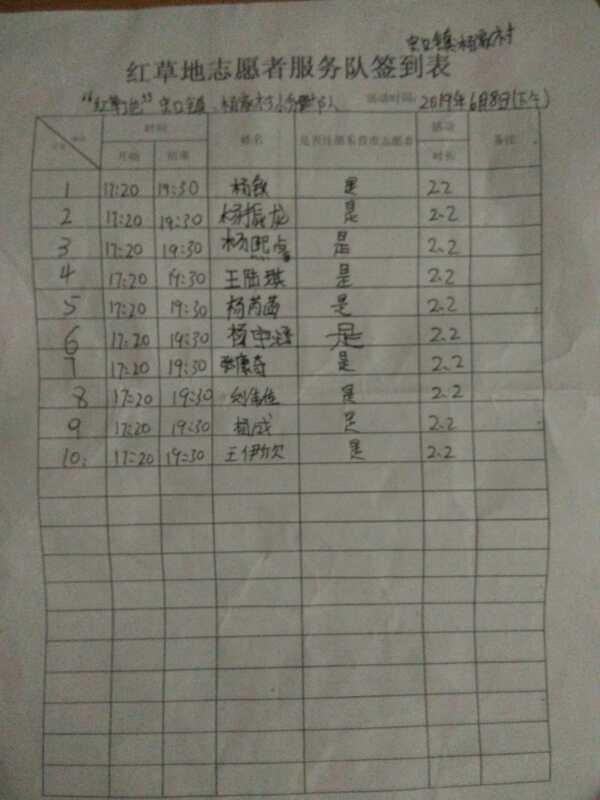 杨家村
红草地志愿者服务队签到表
"红草地" 活动时间: 2019年6月8日(下午)
时间 姓名 是否注册系数志愿者 活动 备注
开始 结束 时长
1 17:20 19:30 是 2.2
2 17:20 19:30 杨振龙 是 2.2
3 17:20 19:30 杨熙睿 是 2.2
4 17:20 19:30 王陆琪 是 2.2
5 17:20 19:30 杨芮菡 是 2.2
6 17:20 19:30 杨申涵 是 2.2
7 17:20 19:30 张康奇 是 2.2
8 17:20 19:30 刘佳佳 是 2.2
9 17:20 19:30 杨成 是 2.2
10. 17:20 19:30 王伊欣 是 2.2